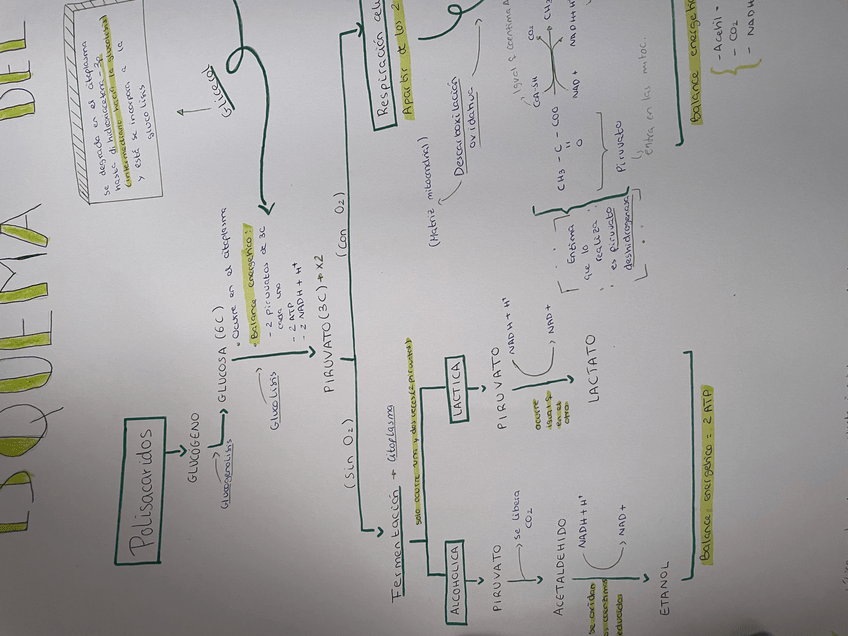 ESQUEMA DEL
Polisacaridos
GLUCÓGENO
Glucogenolisis
GLUCOSA (6C)
• Ocurre en el citoplasma
• Balance energetico:
- 2 piruvatos de 3C
cada uno
- 2 ATP
- 2 NADH + H+
Glucolisis
PIRUVATO (3C) → x2
se degrada en el citoplasma
hasta dihidroxiacetona-3p
(intermediario
y está se incorpora a la
glucolisis
Glicerol
(Sin O2)
(Con O2)
Fermentación → citoplasma
solo ocurre una y dos veces (2 piruvatos)
ALCOHOLICA
PIRUVATO
se libera
CO2
ACETALDEHIDO
NADH + H+
NAD+
se oxidan
reducidas
ETANOL
LACTICA
PIRUVATO
NADH + H+
NAD+
ocurre
igual
en el
otro
LACTATO
Balance energetico = 2 ATP
Respiración
Apartir de los 2
(Matriz mitocondrial)
Descarboxilación
oxidativa
CO2
CoA-SH
NAD+
NADH + H
CH3
CH3 - C - COO
O
Piruvato
entra en las mitoc.
Enzima
que lo
realiza
es piruvato
deshidrogenasa
Balance
- Acetil
- CO2
- NADH